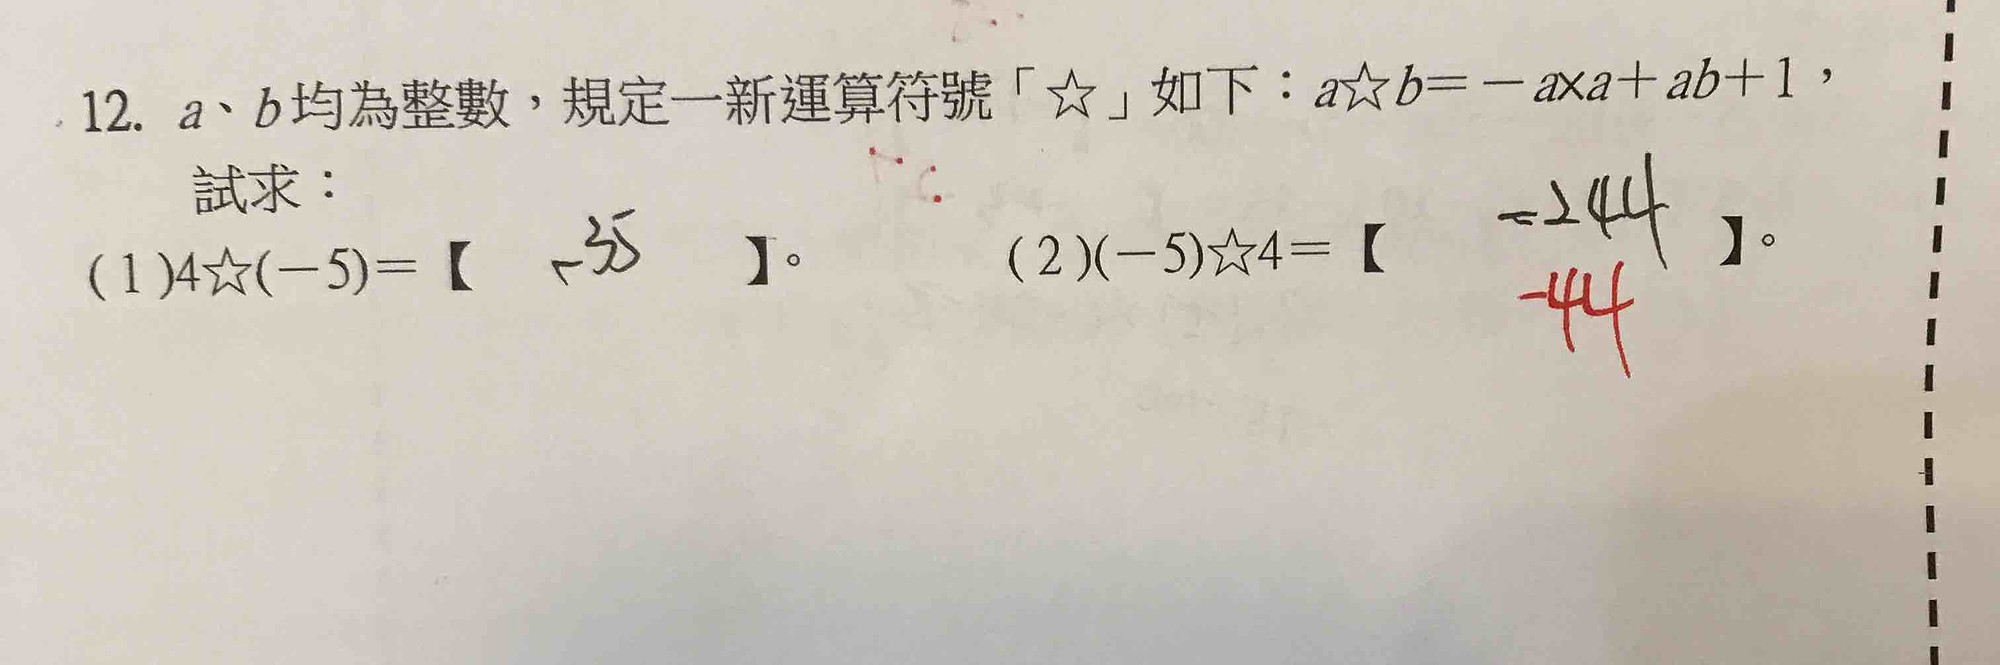 12. a、b均為整數，規定一新運算符號「☆」如下：a☆b＝－a×a＋ab＋1，
試求：
(1)4☆(－5)＝【 -35 】。 (2)(－5)☆4＝【 =244 】。
-44